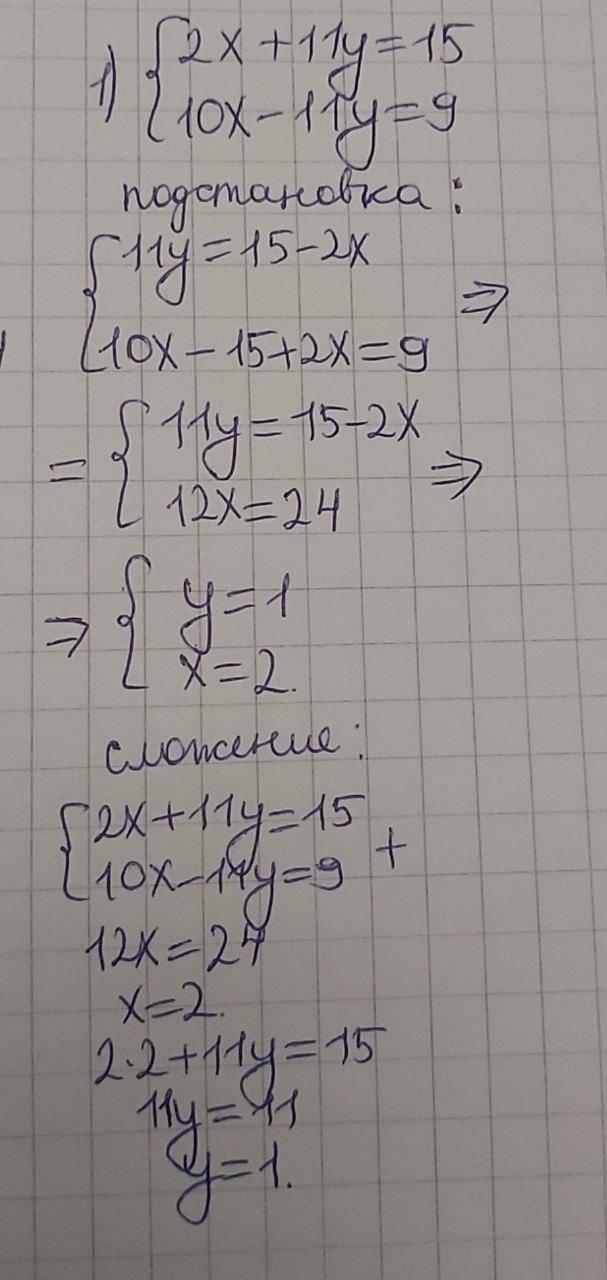 1) { 2x + 11y = 15
10x - 11y = 9
подстановка:
{ 11y = 15 - 2x
10x - 15 + 2x = 9 ⇒
= { 11y = 15 - 2x
12x = 24 ⇒
⇒ { y = 1
x = 2.
сложение:
{ 2x + 11y = 15
10x - 11y = 9 +
12x = 24
x = 2.
2·2 + 11y = 15
11y = 11
y = 1.